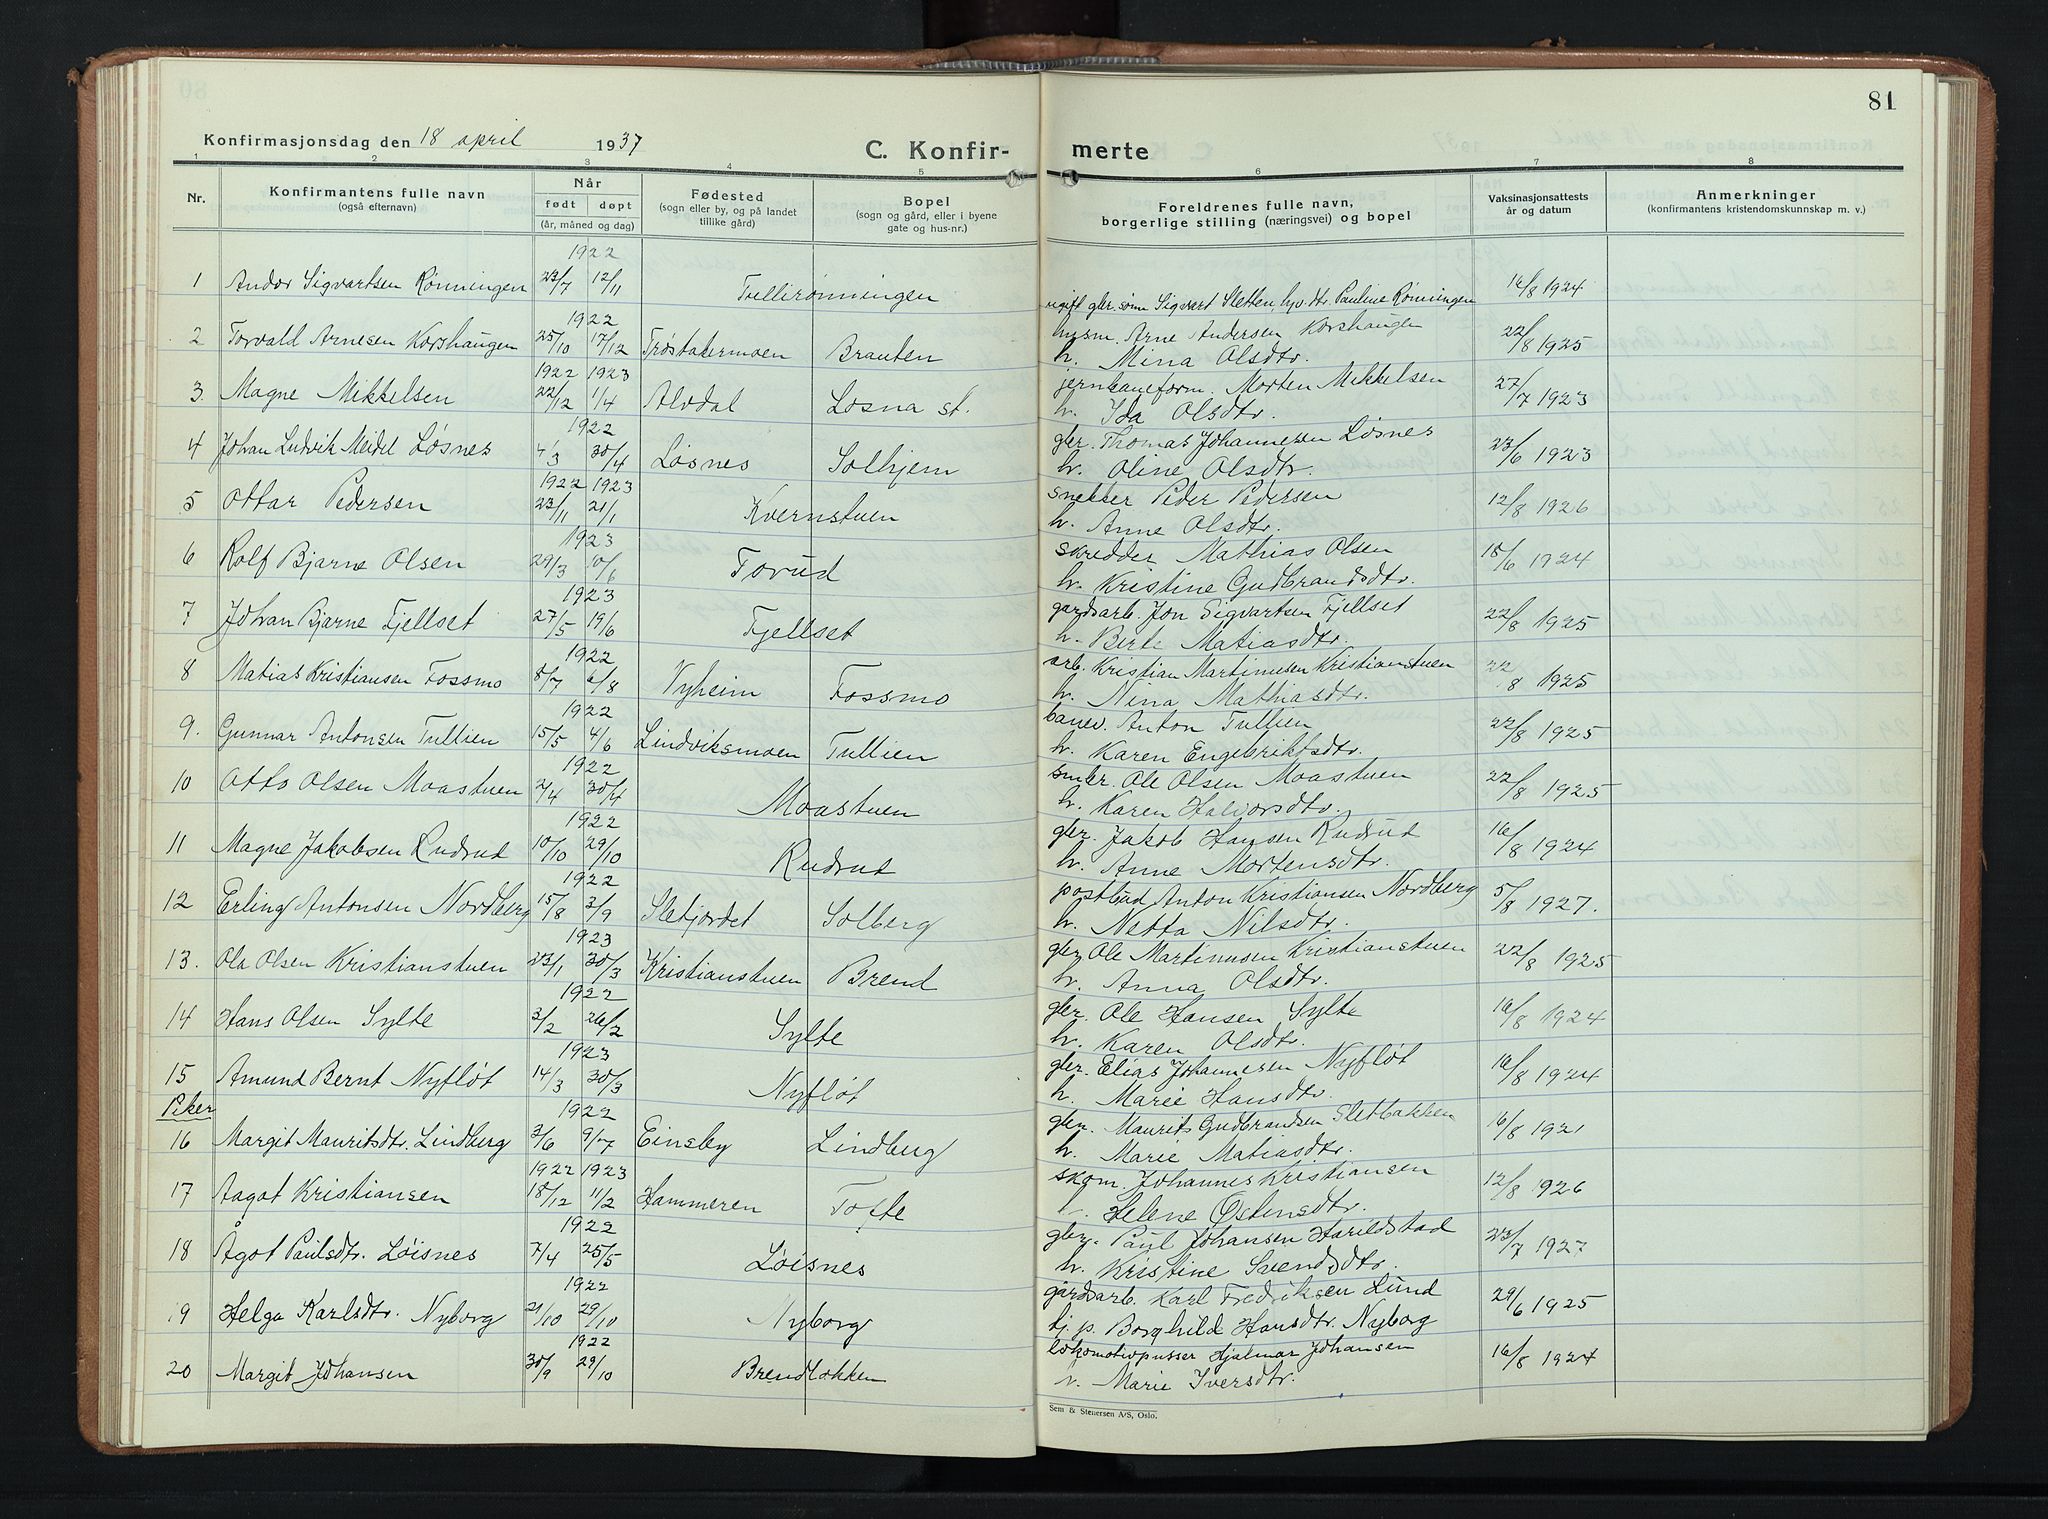 81
Konfirmasjonsdag den 18 april 1937
C. Konfir- merte
1 2 3 4 5 6 7 8
Nr. Konfirmantens fulle navn (også efternavn) Når født døpt (år, måned og dag) Fødested (sogn eller by, og på landet tillike gård) Bopel (sogn og gård, eller i byene gate og hus-nr.) Foreldrenes fulle navn, borgerlige stilling (næringsvei) og bopel Vaksinasjonsattests år og datum Anmerkninger (konfirmantens kristendomskunnskap m. v.)
1922
1 Andor Sigvartsen Rønningen 23/7 12/11 Trillirønningen ugift gbr. sønn Sigvart Sletten, hjv. dtr. Pauline Rønningen 16/8 1924
1922
2 Torvald Arnesen Korshaugen 25/10 17/12 Trøstakermoen Brauten husm. Arne Andersen Korshaugen 22/8 1925
h. Mina Olsdtr.
1922 1923
3. Magne Mikkelsen 22/12 1/4 Alvdal Losna st. jernbaneform. Morten Mikkelsen 27/7 1923
h. Ida Olsdtr.
1922
4 Johan Ludvik Meidel Løsnes 4/3 30/4 Løsnes Solhjem gbr. Thomas Johannesen Løsnes 23/6 1923
h. Oline Olsdtr.
1922 1923
5 Ottar Pedersen 23/11 21/1 Kvernstuen snekker Peder Pedersen 12/8 1926
h. Anne Olsdtr.
1923
6 Rolf Bjarne Olsen 29/3 10/6 Torud skredder Mathias Olsen 18/6 1924
h. Kristine Gudbrandsdtr.
1923
7 Johan Bjarne Fjellset 27/5 19/6 Fjellset gardsarb. Jon Sigvartsen Fjellset 22/8 1925
h. Birte Matiasdtr.
1922
8 Matias Kristiansen Fossmo 8/7 6/8 Nyheim Fossmo arb. Kristian Martinusen Kristianstuen 22/8 1925
h. Nina Mathiasdtr.
1922
9. Gunnar Antonsen Tullien 15/5 4/6 Lindviksmoen Tullien banev. Anton Tullien 22/8 1925
h. Karen Engebriktsdtr.
1922
10 Otto Olsen Moastuen 2/4 30/4 Moastuen smbr. Ole Olsen Moastuen 22/8 1925
h. Karen Halvorsdtr.
1922
11 Magne Jakobsen Rudrud 10/10 29/10 Rudrud gbr. Jakob Hansen Rudrud 16/8 1924
h. Anne Mortensdtr.
1922
12 Erling Antonsen Nordberg 15/8 3/9 Slefjordet Solberg postbud Anton Kristiansen Nordberg 5/8 1927.
h. Netta Nilsdtr.
1923
13. Ola Olsen Kristianstuen 23/1 30/3 Kristianstuen Brend gbr. Ole Martinusen Kristianstuen 22/8 1925
h. Anna Olsdtr.
1922
14 Hans Olsen Sylte 3/2 26/2 Sylte gbr. Ole Hansen Sylte 16/8 1924
h. Karen Olsdtr.
1923
15 Amund Bernt Nyfløt 14/3 30/3 Nyfløt gbr. Elias Johannesen Nyfløt 16/8 1924
h. Marie Hansdtr.
Piker
1922
16 Margit Mauritsdtr. Lindberg 3/6 9/7 Einsby Lindberg gbr. Maurits Gudbrandsen Sletbakken 16/8 1921
h. Marie Matiasdtr.
1922 1923
17 Aagot Kristiansen 18/12 11/2 Hammeren Tofte skom. Johannes Kristiansen 12/8 1926
h. Helene Østensdtr.
1922
18 Ågot Paulsdtr. Løisnes 7/4 25/5 Løisnes gbr. Paul Johansen Harildstad 23/7 1927
h. Kristine Svendsdtr.
1922
19 Helga Karlsdtr. Nyborg 21/10 29/10 Nyborg gårdsarb. Karl Fredriksen Lund 29/6 1925
tj. p. Borghild Hansdtr. Nyborg
1922
20 Margit Johansen 30/9 29/10 Brendløkken lokomotivpusser Hjalmar Johansen 16/8 1924
h. Marie Iversdtr.
Sem & Stenersen A/S, Oslo.